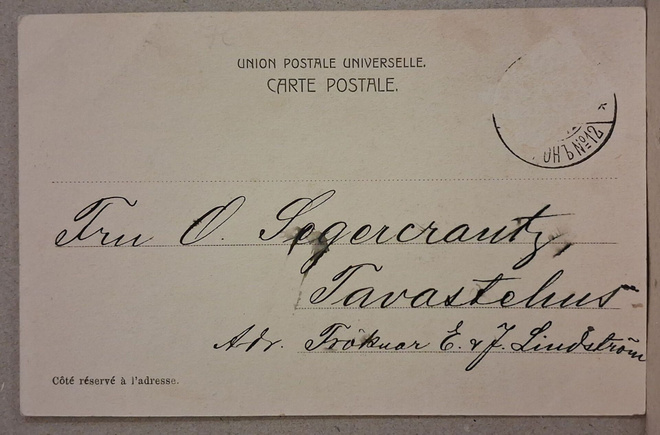 UNION POSTALE UNIVERSELLE.
CARTE POSTALE.
Fru O. Segercrantz,
Tavastehus
Adr. Fröknar E. & J. Lindström
Côté réservé à l'adresse.